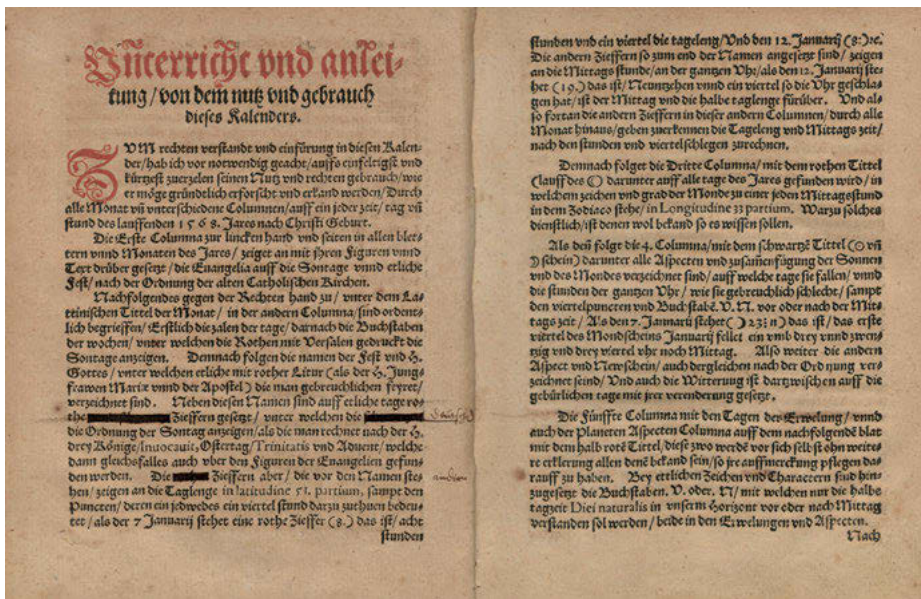 Vnterricht vnd anlei-
tung / von dem nutz vnd gebrauch
dieses Kalenders.
ZVM rechten verstandt vnd einfürung in diesen Kalen-
der / hab ich vor notwendig geacht / auffs einfeltigst vnd
kürtzest zuerzelen seinen Nutz vnd rechten gebrauch / wie
er möge gründtlich erforscht vnd erkand werden / Durch
alle Monat vn̄ vnterschiedene Columnen / auff ein jeder zeit / tag vn̄
stund des lauffenden 1568. Jares nach Christi Geburt.
Die Erste Columna zur lincken hand vnd seiten in allen blet-
tern vnnd Monaten des Jares / zeiget an mit jhren Figuren vnnd
Text drüber gesetzt / die Euangelia auff die Sontage vnnd etliche
Fest / nach der Ordnung der alten Catholischen Kirchen.
Nachfolgendes gegen der Rechten hand zu / vnter dem La-
ttinischen Tittel der Monat / in der andern Columna / sind ordent-
lich begrieffen / Erstlich die zalen der tage / darnach die Buchstaben
der wochen / vnter welchen die Rothen mit Versalen gedruckt die
Sontage anzeigen. Demnach folgen die namen der Fest vnd H.
Gottes / vnter welchen etliche mit rother Litur (als der H. Jung-
frawen Mariæ vnnd der Apostel) die man gebreuchlichen feyret /
verzeichnet sind. Neben diesen Namen sind auff etliche tage ro-
the Zieffern gesetzt / vnter welchen die
die Ordnung der Sontag anzeigen / als die man rechnet nach der H.
drey Könige / Inuocauit / Ostertag / Trinitatis vnd Aduent / welche
dann gleichsfalles auch vber den Figuren der Euangelien gefun-
den werden. Die Zieffern aber / die vor den Namen ste-
hen / zeigen an die Taglenge in latitudine 51. partium, sampt den
Puncten / deren ein jedwedes ein viertel stund darzu zuthuen bedeu-
tet / als der 7 Januarij stehet eine rothe Zieffer (8.) das ist / acht
stunden
stunden vnd ein viertel die tageleng / Vnd den 12. Januarij (8:) ꝛc.
Die andern Zieffern so zum end der Namen angesetzt sind / zeigen
an die Mittags stunde / an der gantzen Vhr / als den 12. Januarij ste-
het (19.) das ist / Neuntzehen vnnd ein viertel so die Vhr geschla-
gen hat / ist der Mittag vnd die halbe taglenge fürüber. Vnd al-
so fortan die andern Zieffern in dieser andern Columnen / durch alle
Monat hinaus / geben zuerkennen die Tageleng vnd Mittags zeit /
nach den stunden vnd viertelschlegen zurechnen.
Demnach folget die Dritte Columna / mit dem rothen Tittel
(lauff des ☾) darunter auff alle tage des Jares gefunden wird / in
welchem zeichen vnd grad der Monde zu einer jeden Mittagsstund
in dem Zodiaco stehe / in Longitudine 33 partium. Warzu solches
dienstlich / ist denen wol bekand so es wissen sollen.
Als den̄ folgt die 4. Columna / mit dem schwartzē Tittel (☉ vn̄
☽ schein) darunter alle Aspecten vnd zusamenfügung der Sonnen
vnd des Mondes verzeichnet sind / auff welche tage sie fallen / vnnd
die stunden der gantzen Vhr / wie sie gebreuchlich schlecht / sampt
den viertelpuncten vnd Buchstabē. V. N. vor oder nach der Mit-
tags zeit / Als den 7. Januarij stehet (☽ 23⁝ n) das ist / das erste
viertel des Mondscheins Januarij fellet ein vmb drey vnnd zwen-
tzig vnd drey viertel vhr noch Mittag. Also weiter die andern
Aspect vnd Newschein / auch dergleichen nach der Ordnung ver-
zeichnet seind / Vnd auch die Witterung ist dartzwischen auff die
gebürlichen tage mit jrer verenderung gesetzt.
Die Fünffte Columna mit den Tagen der Erwelung / vnnd
auch der Planeten Aspecten Columna auff dem nachfolgendē blat
mit dem halb rotē Tittel / diese zwo werdē vor sich selbst ohn weite-
re erklerung allen denē bekand sein / so jre auffmerckung pflegen das
rauff zu haben. Bey ettlichen Zeichen vnd Charactern sind hin-
zugesetzt die Buchstaben. V. oder. N / mit welchen nur die halbe
tagzeit Diei naturalis in vnserm Horizont vor oder nach Mittag
verstanden sol werden / beide in den Erwelungen vnd Aspecten.
Nach